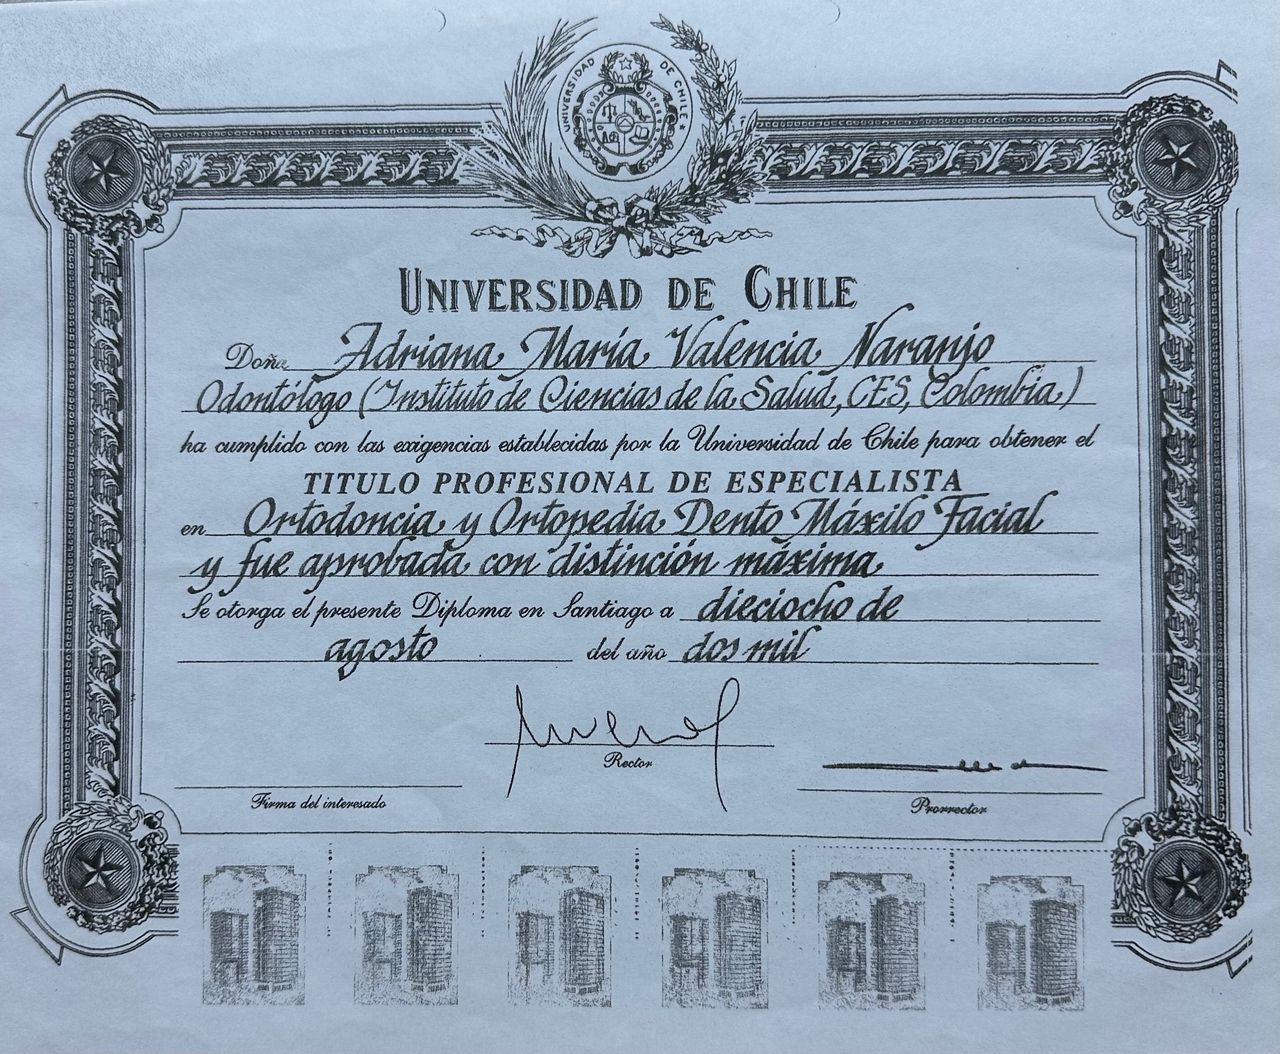 UNIVERSIDAD DE CHILE
UNIVERSIDAD DE CHILE
Doña Adriana María Valencia Naranjo
Odontólogo (Instituto de Ciencias de la Salud, CES, Colombia)
ha cumplido con las exigencias establecidas por la Universidad de Chile para obtener el
TITULO PROFESIONAL DE ESPECIALISTA
en Ortodoncia y Ortopedia Dento Máxilo Facial
y fue aprobada con distinción máxima
Se otorga el presente Diploma en Santiago a dieciocho de
agosto del año dos mil
Rector
Firma del interesado
Prorrector